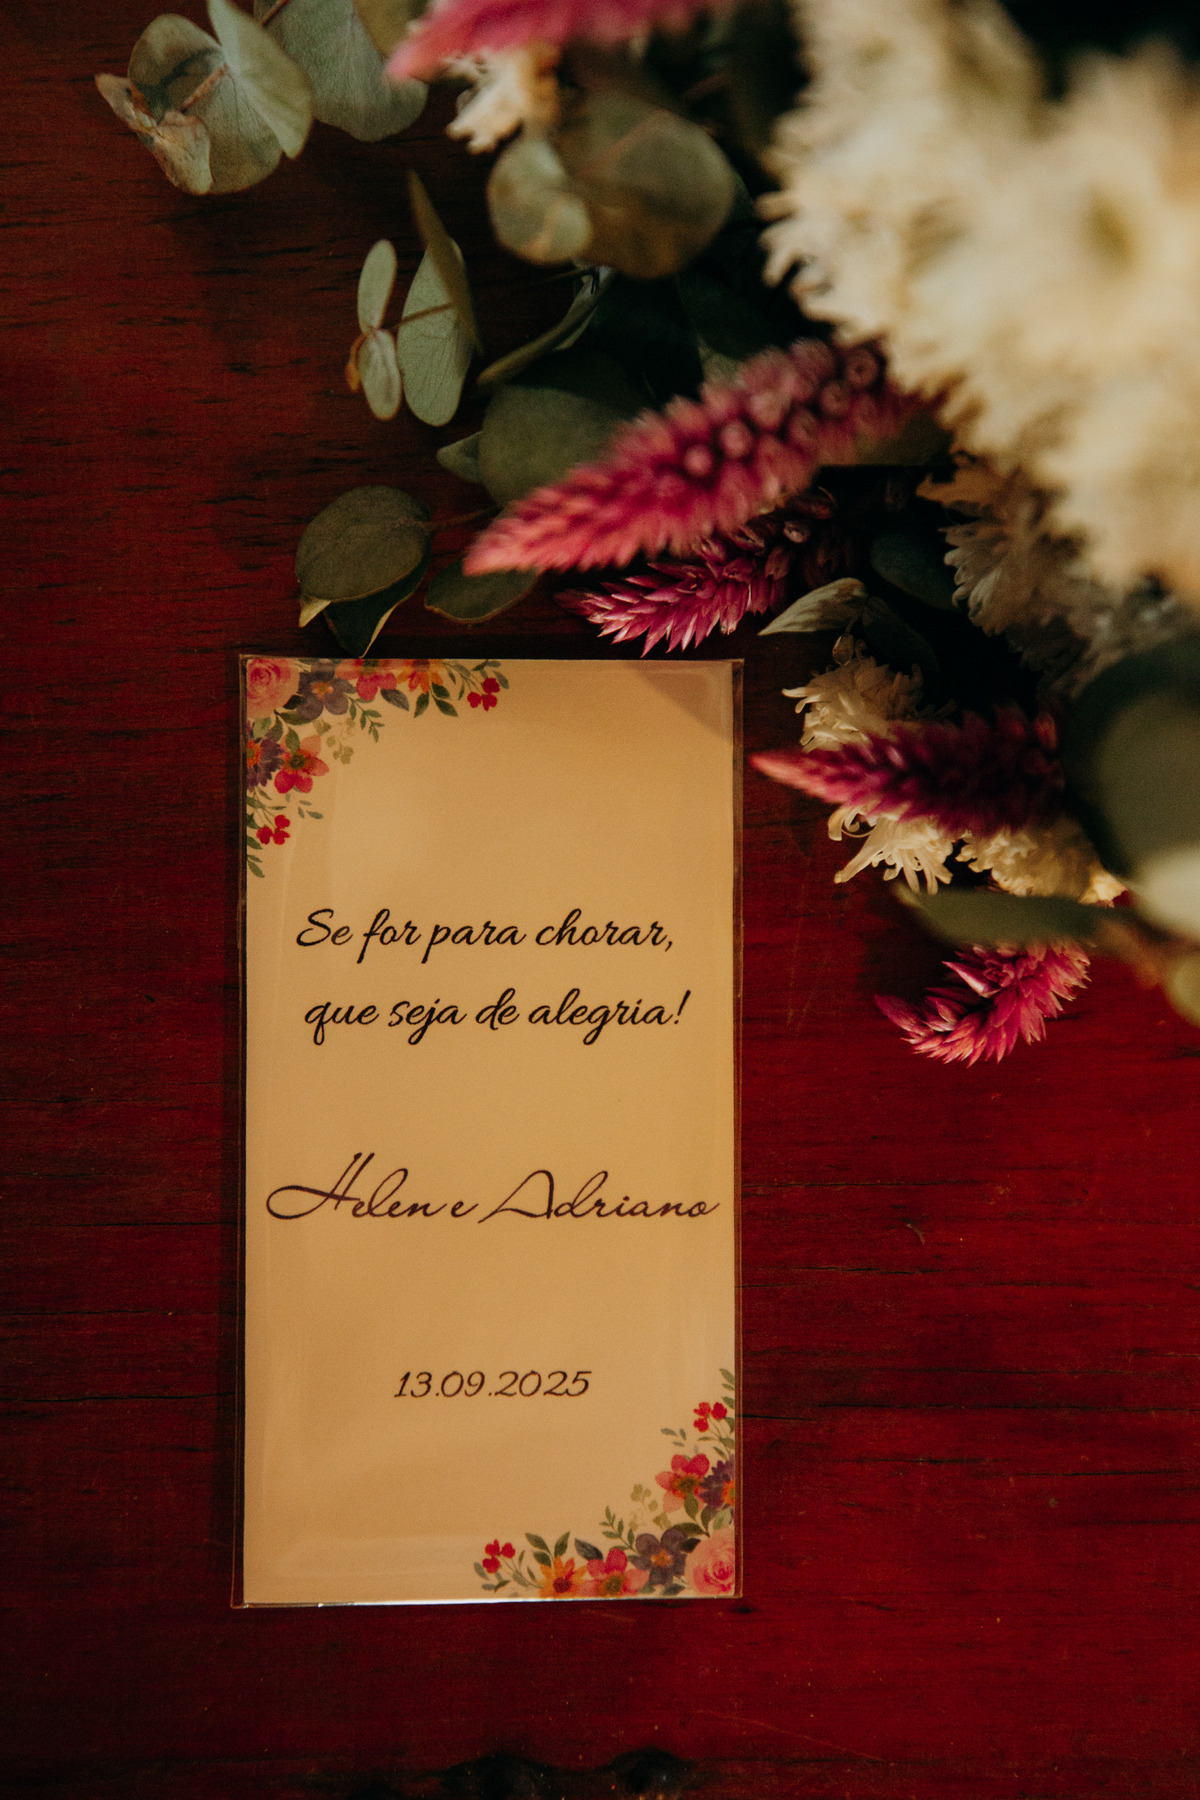 Se for para chorar,
que seja de alegria!
Helen e Adriano
13.09.2025